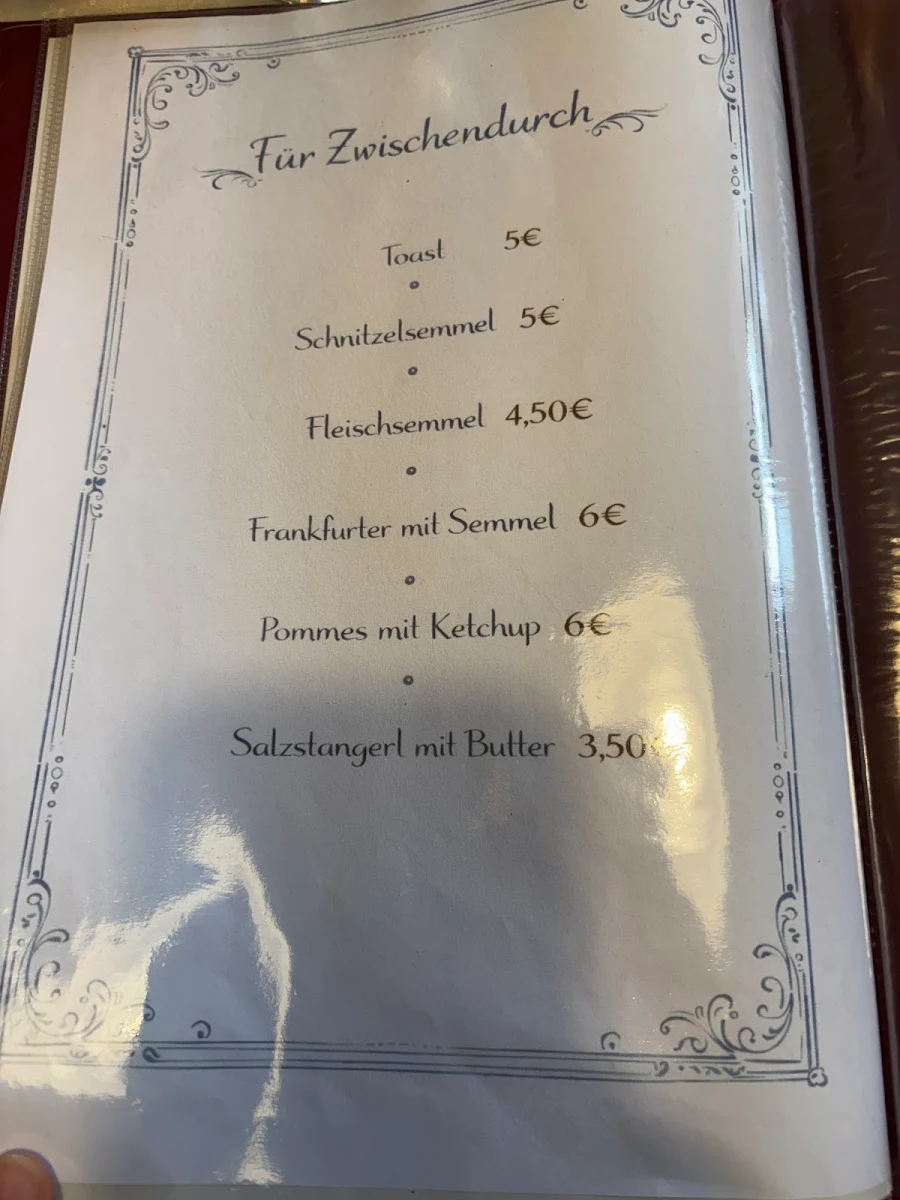 Für Zwischendurch
Toast 5€
Schnitzelsemmel 5€
Fleischsemmel 4,50€
Frankfurter mit Semmel 6€
Pommes mit Ketchup 6€
Salzstangerl mit Butter 3,50